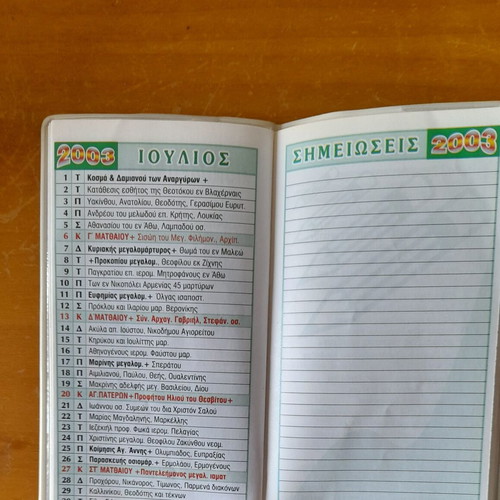 2003 ΙΟΥΛΙΟΣ
1 Τ Κοσμά & Δαμιανού των Αναργύρων +
2 Τ Κατάθεσις εσθήτος της Θεοτόκου εν Βλαχέρναις
3 Π Υακίνθου, Ανατολίου, Θεοδότης, Γερασίμου Ευρυτ.
4 Π Ανδρέου του μελωδού επ. Κρήτης, Λουκίας
5 Σ Αθανασίου του εν Άθω, Λαμπαδού οσ.
6 Κ Γ΄ ΜΑΤΘΑΙΟΥ + Σισώη του Μεγ. Φιλήμον., Αρχίπ.
7 Δ Κυριακής μεγαλομάρτυρος + Θωμά του εν Μαλεώ
8 Τ +Προκοπίου μεγαλομ., Θεοφίλου εκ Ζίχνης
9 Τ Παγκρατίου επ. ιερομ. Μητροφάνους εν Άθω
10 Π Των εν Νικοπόλει Αρμενίας 45 μαρτύρων
11 Π Ευφημίας μεγαλομ.+ Όλγας ισαποστ.
12 Σ Πρόκλου και Ιλαρίου μαρ. Βερονίκης
13 Κ Δ΄ΜΑΤΘΑΙΟΥ + Σύν. Αρχαγ. Γαβριήλ, Στεφάν. οσ.
14 Δ Ακύλα απ. Ιούστου, Νικοδήμου Αγιορείτου
15 Τ Κηρύκου και Ιουλίττης μαρ.
16 Τ Αθηνογένους ιερομ. Φαύστου μαρ.
17 Π Μαρίνης μεγαλομ.+ Σπεράτου
18 Π Αιμιλιανού, Παύλου, Θεής, Ουαλεντίνης
19 Σ Μακρίνης αδελφής μεγ. Βασιλείου, Δίου
20 Κ ΑΓ.ΠΑΤΕΡΩΝ + Προφήτου Ηλιού του Θεσβίτου +
21 Δ Ιωάννου οσ. Συμεών του δια Χριστόν Σαλού
22 Τ Μαρίας Μαγδαληνής, Μαρκέλλης
23 Τ Ιεζεκιήλ προφ. Φωκά ιερομ. Πελαγίας
24 Π Χριστίνης μεγαλομ. Θεοφίλου Ζακύνθου νεομ.
25 Π Κοίμησις Αγ. Άννης + Ολυμπιάδος, Ευπραξίας
26 Σ Παρασκευής οσιομάρ.+ Ερμολάου, Ερμογένους
27 Κ ΣΤ΄ ΜΑΤΘΑΙΟΥ +Παντελεήμονος μεγαλ. ιαματ
28 Δ Προχόρου, Νικάνορος, Τίμωνος, Παρμενά διακόνων
29 Τ Καλλινίκου, Θεοδότης και τέκνων
ΣΗΜΕΙΩΣΕΙΣ 2003